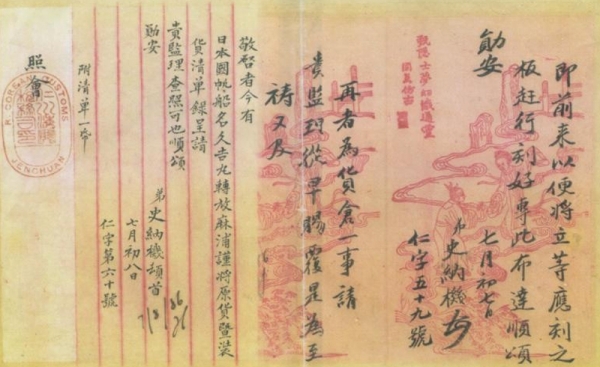 即前来以便將立等應刻之
板赶行刻好專此布達順頌
勛安
七月初七日
弟史納機
仁字五十九號
再者為貨倉一事請
貴監理從早賜覆是為至
禱又及
敬啓者今有
日本國帆船名久吉九轉放麻浦謹將原貨暨裝
貨清單錄呈請
貴監理查照可也順頌
勛安
弟史納機頓首
七月初八日
仁字第六十號
附清單一帋
照會
COREAN CUSTOMS
JENCHUAN